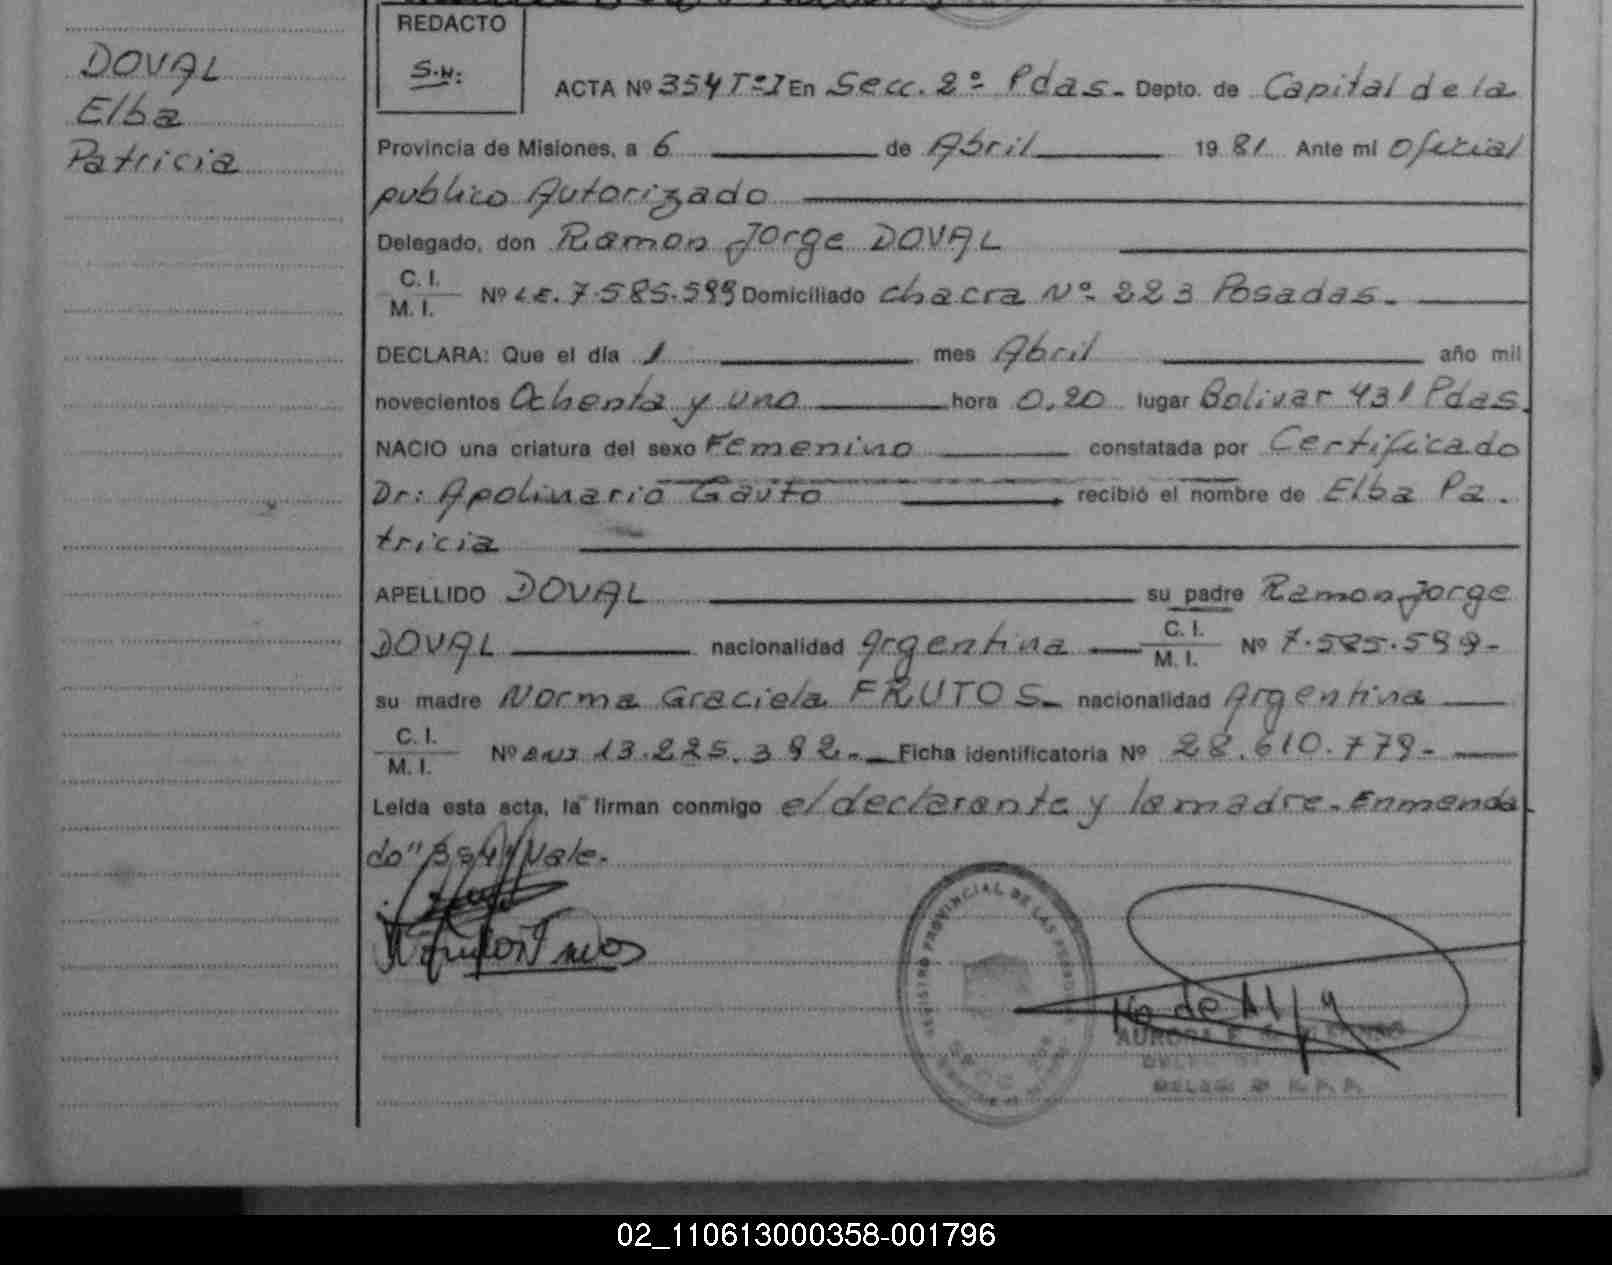 DOVAL
Elba
Patricia
REDACTO
S.N:
ACTA Nº 354 Tº I En Secc. 2º Pdas. Depto. de Capital de la
Provincia de Misiones, a 6 de Abril 1981 Ante mi Oficial
publico Autorizado
Delegado, don Ramon Jorge DOVAL
C. I.
M. I. Nº L.E. 7.585.599 Domiciliado chacra Nº 223 Posadas.
DECLARA: Que el día 1 mes Abril año mil
novecientos Ochenta y uno hora 0,20 lugar Bolivar 431 Pdas.
NACIO una criatura del sexo Femenino constatada por Certificado
Dr: Apolinario Gauto recibió el nombre de Elba Pa.
tricia
APELLIDO DOVAL su padre Ramon Jorge
DOVAL nacionalidad Argentina C. I. M. I. Nº 7.585.599-
su madre Norma Graciela FRUTOS nacionalidad Argentina
C. I.
M. I. Nº DNI 13.225.392.- Ficha identificatoria Nº 28.610.779-
Leída esta acta, la firman conmigo el declarante y la madre. Enmenda
do "354" Vale.
REGISTRO PROVINCIAL DE LAS PERSONAS
AURORA
02_110613000358-001796